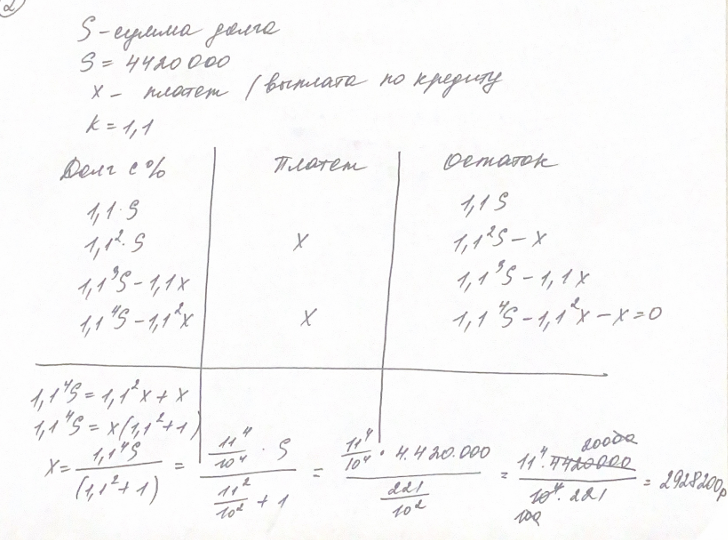 2
S - сумма долга
S = 4420000
x - платеж / выплата по кредиту
k = 1,1
Долг с % Платеж Остаток
1,1·S 1,1S
1,1²·S x 1,1²S - x
1,1³S - 1,1x 1,1³S - 1,1x
1,1⁴S - 1,1²x x 1,1⁴S - 1,1²x - x = 0
1,1⁴S = 1,1²x + x
1,1⁴S = x(1,1² + 1)
x = 1,1⁴S / (1,1² + 1) = (11⁴/10⁴ · S) / (11²/10² + 1) = (11⁴/10⁴ · 4.420.000) / (221/10²) = 11⁴ · 4420000 20000 / 10⁴ · 221 100 = 2928200р